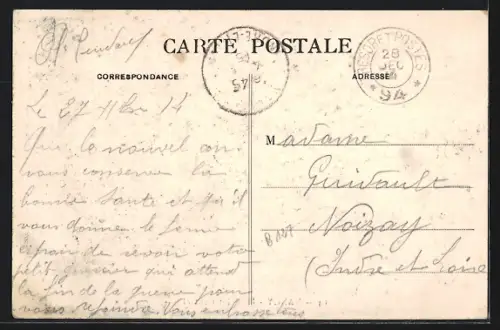 CARTE POSTALE
CORRESPONDANCE
ADRESSE
TRESOR ET POSTES
28
DEC
* 94 *
Le 27 Xbre 14
Que le nouvel an
vous conserve la
bonne santé et qu'il
vous donne le ferme
espoir de revoir votre
petit qui attend
la fin de la guerre pour
vous rejoindre Vous
Madame
Guidault
Noizay
(Indre et Loire
B 127